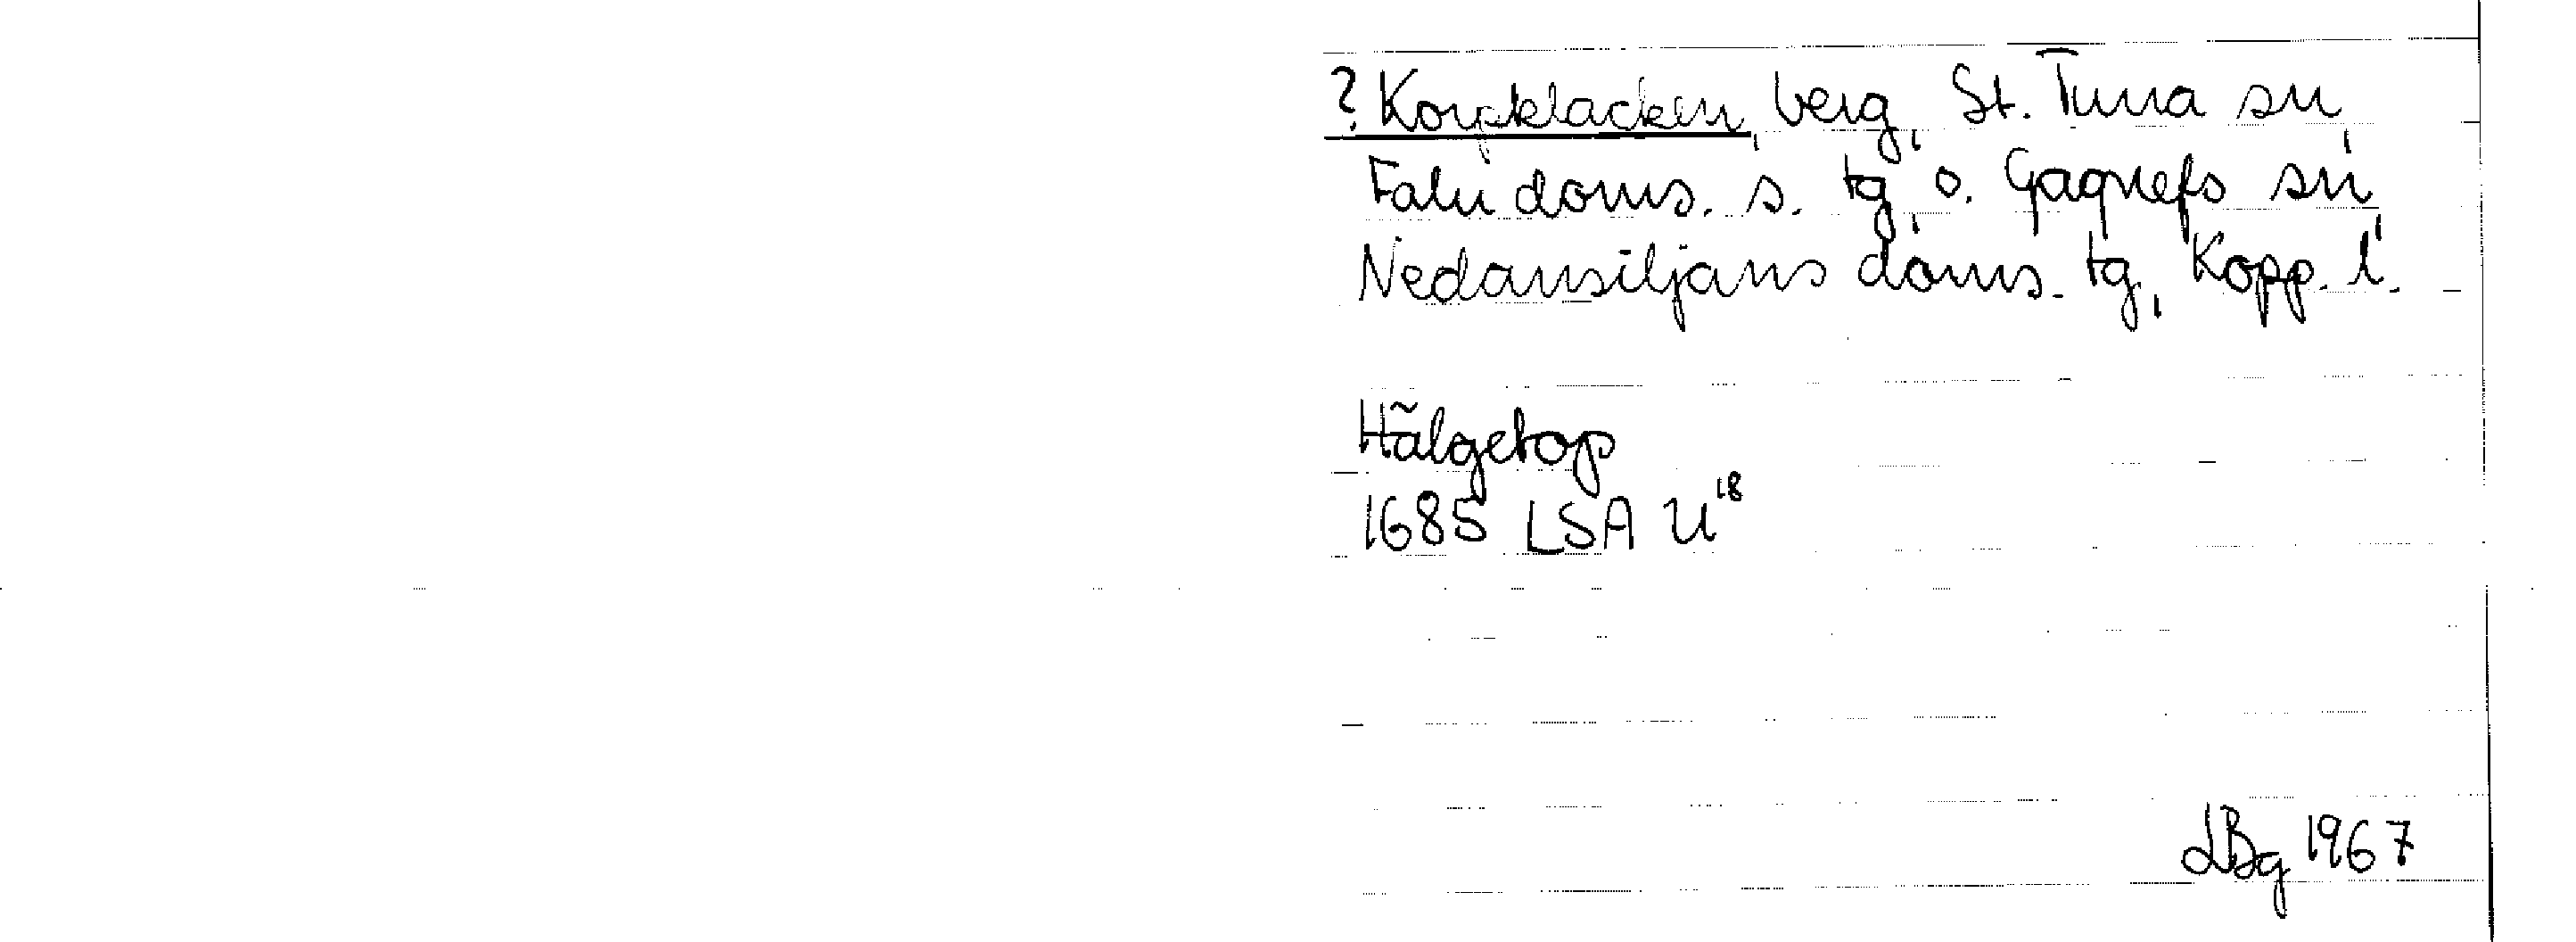 ? Korpklacken, berg, St. Tuna sn,
Falu doms. s. tg, o. Gagnefs sn,
Nedansiljans doms. tg, Kopp. l.
Hãlgetop
1685 LSA U¹⁸
LBg 1967